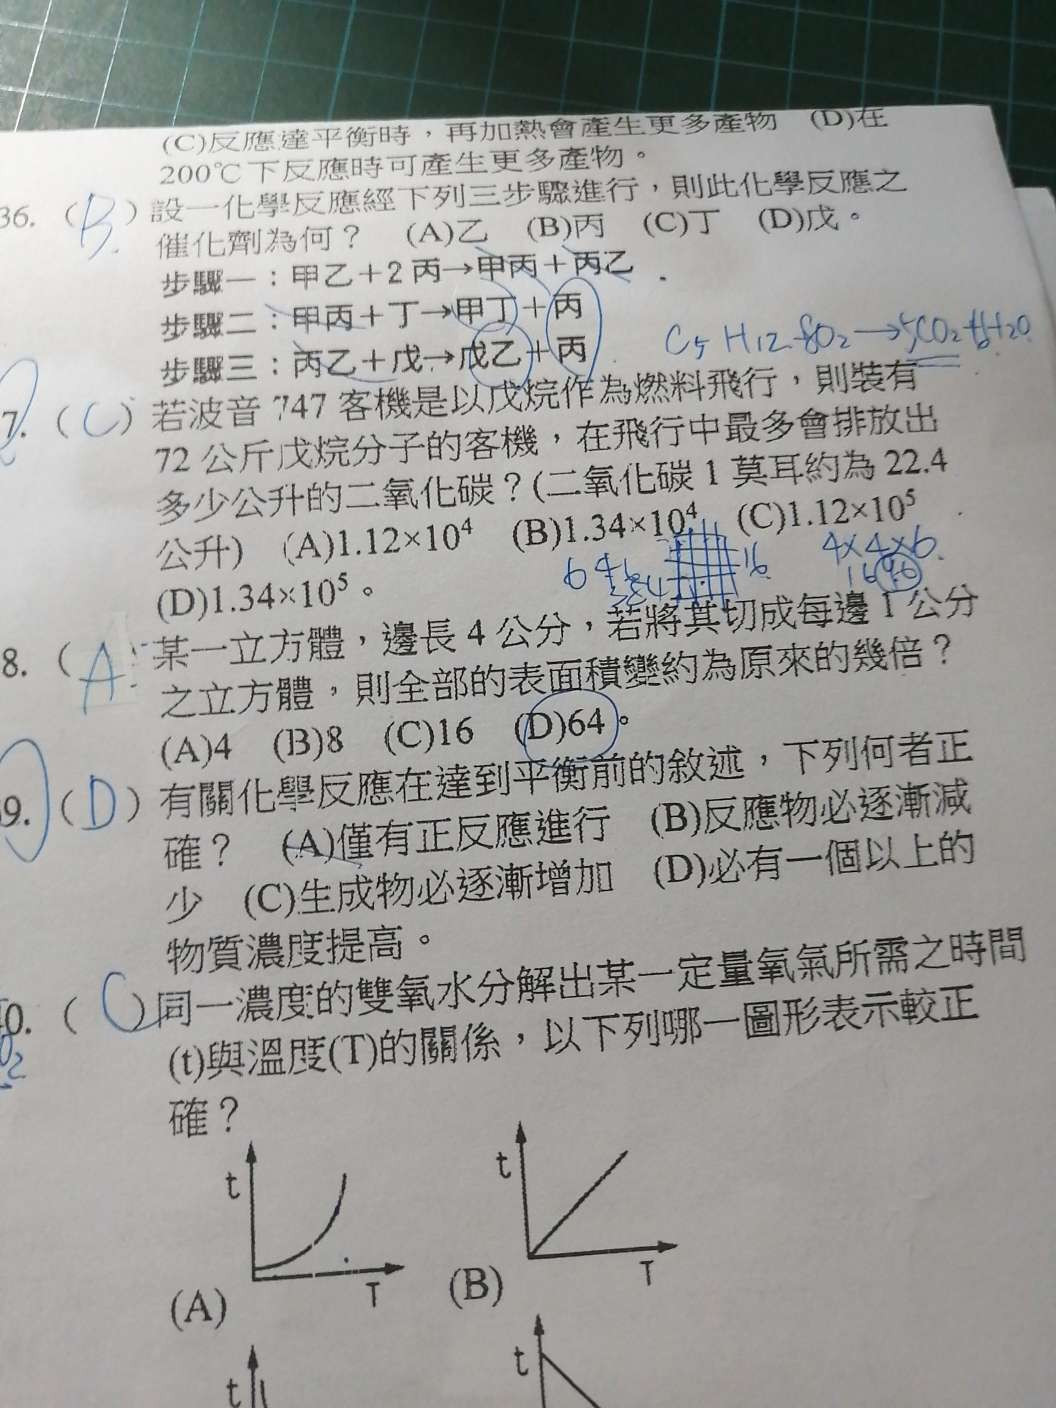 (C)反應達平衡時，再加熱會產生更多產物 (D)在
200℃下反應時可產生更多產物。
36. (B) 設一化學反應經下列三步驟進行，則此化學反應之
催化劑為何？ (A)乙 (B)丙 (C)丁 (D)戊。
步驟一：甲乙＋2 丙→甲丙＋丙乙
步驟二：甲丙＋丁→甲丁＋丙
步驟三：丙乙＋戊→戊乙＋丙
C5H12 8O2→5CO2+6H2O
7. (C) 若波音 747 客機是以戊烷作為燃料飛行，則裝有
72 公斤戊烷分子的客機，在飛行中最多會排放出
多少公升的二氧化碳？(二氧化碳 1 莫耳約為 22.4
公升) (A)1.12×10⁴ (B)1.34×10⁴ (C)1.12×10⁵
(D)1.34×10⁵。
64
384
16
4×4×6
16
96
8. (A) 某一立方體，邊長 4 公分，若將其切成每邊 1 公分
之立方體，則全部的表面積變約為原來的幾倍？
(A)4 (B)8 (C)16 (D)64。
9. (D) 有關化學反應在達到平衡前的敘述，下列何者正
確？ (A)僅有正反應進行 (B)反應物必逐漸減
少 (C)生成物必逐漸增加 (D)必有一個以上的
物質濃度提高。
0. (C) 同一濃度的雙氧水分解出某一定量氧氣所需之時間
(t)與溫度(T)的關係，以下列哪一圖形表示較正
確？
t
T
(A)
t
T
(B)
t
t